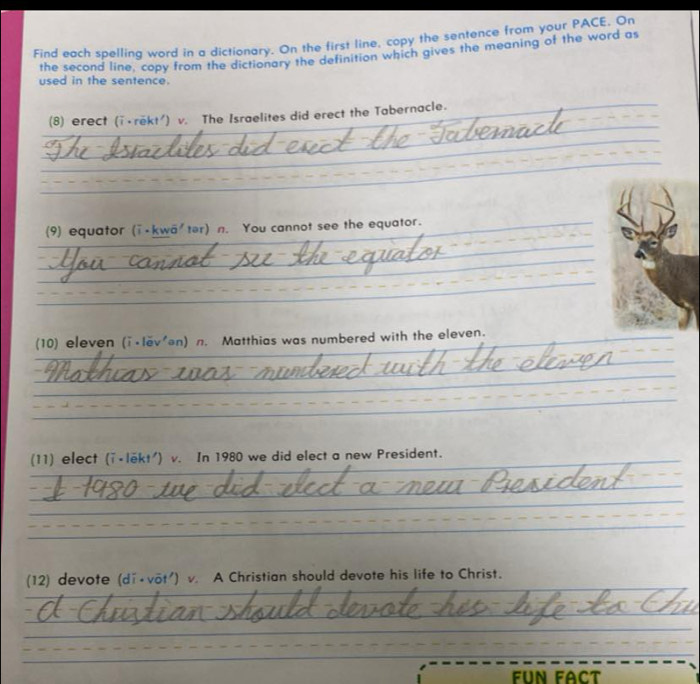 Find each spelling word in a dictionary. On the first line, copy the sentence from your PACE. On
the second line, copy from the dictionary the definition which gives the meaning of the word as
used in the sentence.
(8) erect (ĭ · rĕkt′) v. The Israelites did erect the Tabernacle.
The Israelites did erect the Tabernacle
(9) equator (ĭ · kwā′ tər) n. You cannot see the equator.
You cannot see the equator
(10) eleven (ĭ · lĕv′ ən) n. Matthias was numbered with the eleven.
Mathias was numbered with the eleven
(11) elect (ĭ · lĕkt′) v. In 1980 we did elect a new President.
I 1980 we did elect a new President
(12) devote (dĭ · vōt′) v. A Christian should devote his life to Christ.
A Christian should devote his life to Chri
FUN FACT